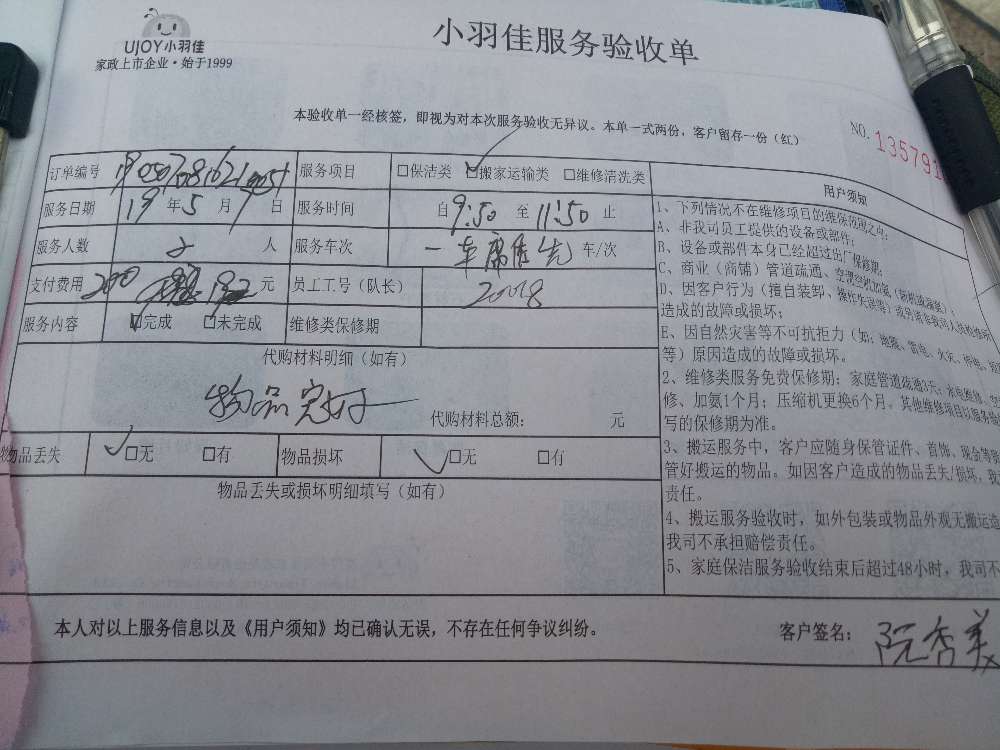 UJOY小羽佳
家政上市企业·始于1999
小羽佳服务验收单
本验收单一经核签，即视为对本次服务验收无异议。本单一式两份，客户留存一份（红）
NO. 135791
订单编号
服务项目 □保洁类 □搬家运输类 □维修清洗类
服务日期 19 年 5 月 9 日 服务时间 自 9:50 至 11:50 止
服务人数 人 服务车次 一车 车/次
支付费用 200 元 员工工号（队长） 20018
服务内容 □完成 □未完成 维修类保修期
代购材料明细（如有）
物品完好
代购材料总额： 元
物品丢失 □无 □有 物品损坏 □无 □有
物品丢失或损坏明细填写（如有）
用户须知
1、下列情况不在维修项目的维保范围之内：
A、非我司员工提供的设备或部件；
B、设备或部件本身已经超过出厂保修期；
C、商业（商铺）管道疏通、
D、因客户行为（擅自装卸、操作失误等）
造成的故障或损坏；
E、因自然灾害等不可抗拒力（如：地震、雷电、火灾、停电、
等）原因造成的故障或损坏。
2、维修类服务免费保修期：家庭管道疏通3天；水电维修、
修、加氨1个月；压缩机更换6个月。其他维修项目以服务
写的保修期为准。
3、搬运服务中，客户应随身保管证件、首饰、现金等
管好搬运的物品。如因客户造成的物品丢失/损坏，我
责任。
4、搬运服务验收时，如外包装或物品外观无搬运造
我司不承担赔偿责任。
5、家庭保洁服务验收结束后超过48小时，我司不
本人对以上服务信息以及《用户须知》均已确认无误，不存在任何争议纠纷。
客户签名： 阮秀美